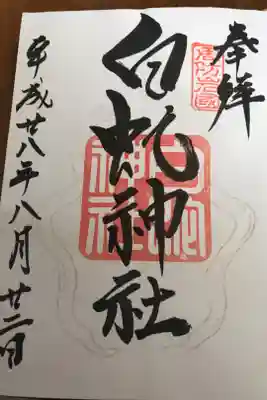 奉拝
周防岩国
白蛇神社
白蛇神社
平成廿八年八月廿二日